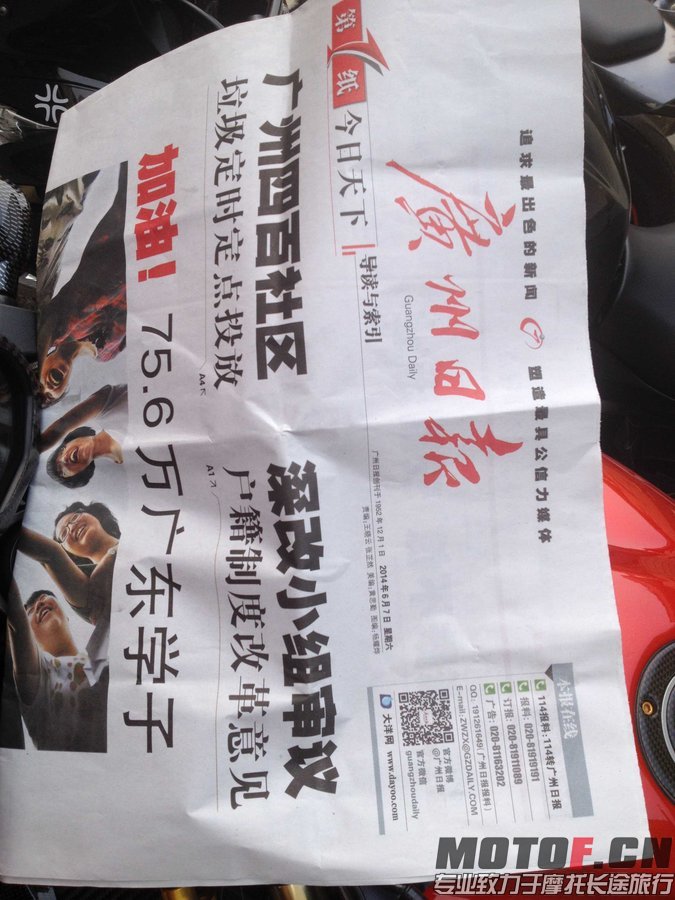 追求最出色的新闻 塑造最具公信力媒体
廣州日报
Guangzhou Daily
广州日报创刊于1952年12月1日 2014年6月7日 星期六
本报在线
114报料:114转广州日报
报料:020-81919191
订报:020-81911089
广告:020-81163202
QQ:191261649(广州日报报料)
E-mail:ZWZX@GZDAILY.COM
官方微博
@广州日报
官方微信
guangzhoudaily
大洋网 www.dayoo.com
第1纸 今日天下 导读与索引
广州四百社区
垃圾定时定点投放
深改小组审议
户籍制度改革意见
加油!75.6万广东学子
MOTOF.CN
专业致力于摩托长途旅行